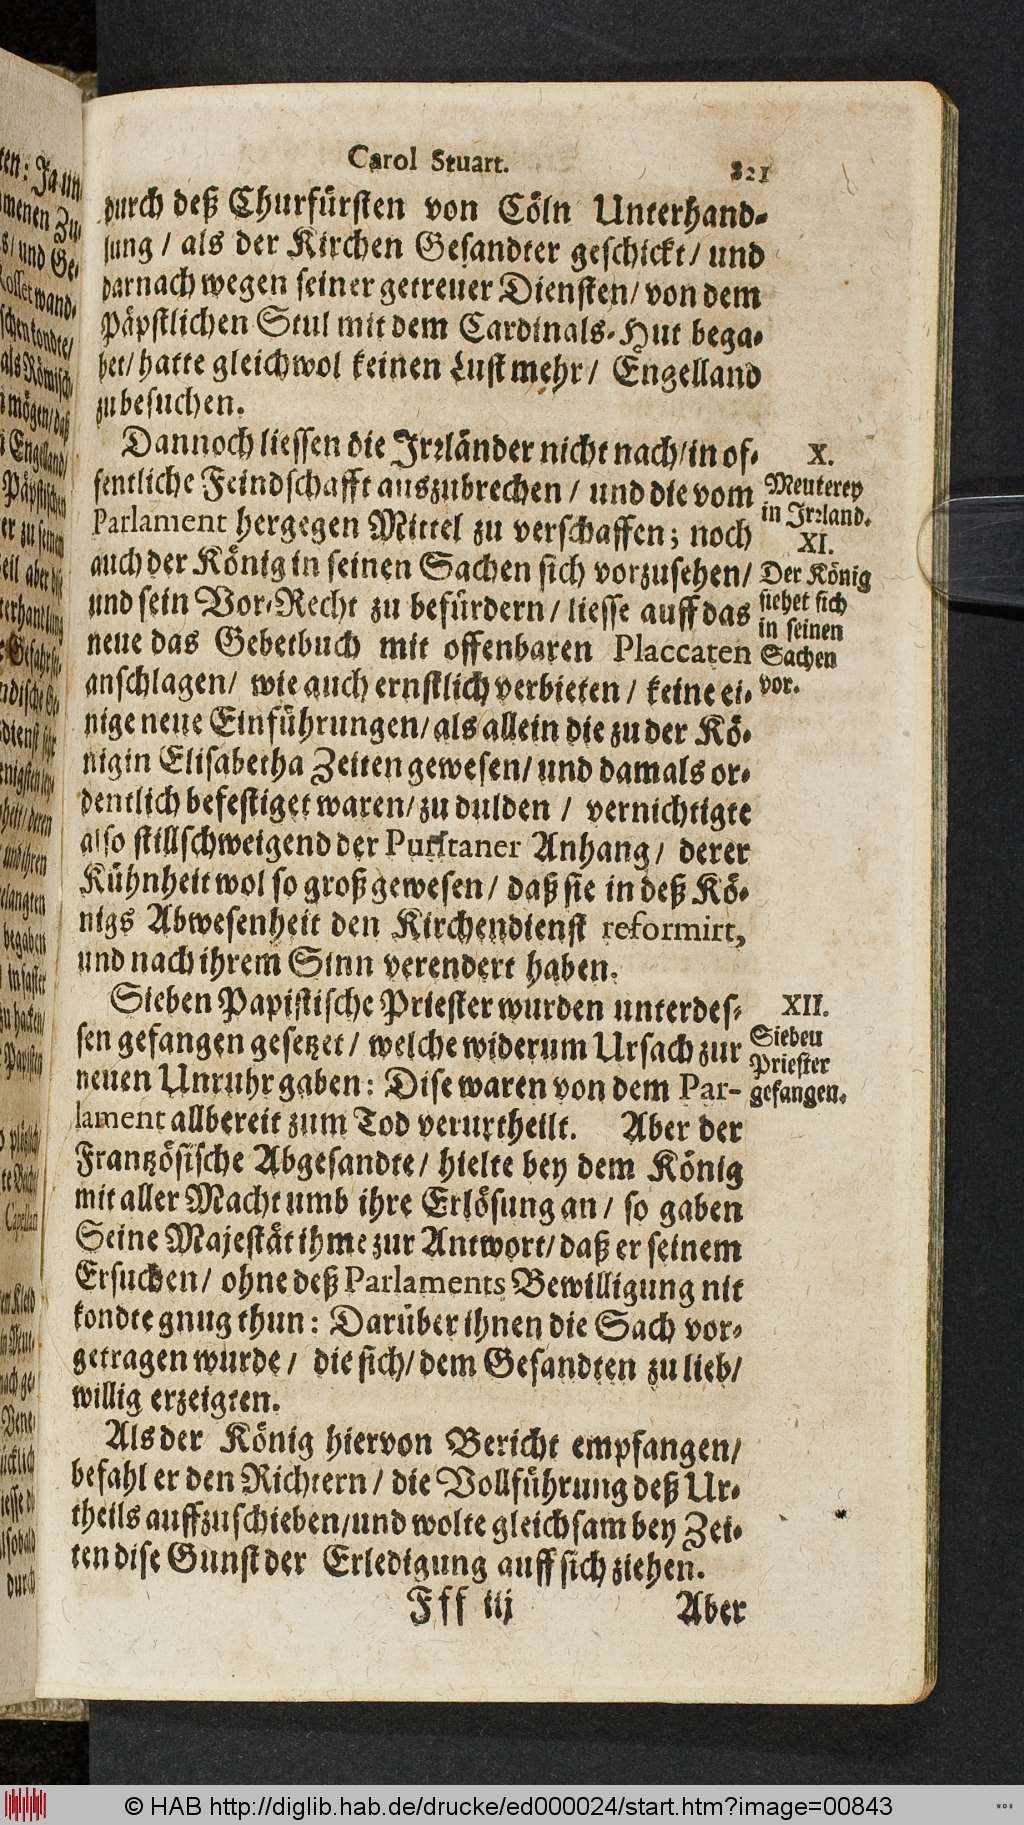 Carol Stuart. 821
durch deß Churfürsten von Cöln Unterhand-
lung / als der Kirchen Gesandter geschickt / und
darnach wegen seiner getreuer Diensten / von dem
Päpstlichen Stul mit dem Cardinals-Hut bega-
bet / hatte gleichwol keinen Lust mehr / Engelland
zu besuchen.
Dannoch liessen die Irrländer nicht nach / in of-
fentliche Feindschafft auszubrechen / und die vom
Parlament hergegen Mittel zu verschaffen; noch
auch der König in seinen Sachen sich vorzusehen /
und sein Vor-Recht zu befürdern / liesse auff das
neue das Gebetbuch mit offenbaren Placcaten
anschlagen / wie auch ernstlich verbieten / keine ei-
nige neue Einführungen / als allein die zu der Kö-
nigin Elisabetha Zeiten gewesen / und damals or-
dentlich befestiget waren / zu dulden / vernichtigte
also stillschweigend der Puritaner Anhang / derer
Kühnheit wol so groß gewesen / daß sie in deß Kö-
nigs Abwesenheit den Kirchendienst reformirt,
und nach ihrem Sinn verendert haben.
X.
Meuterey
in Irrland.
XI.
Der König
siehet sich
in seinen
Sachen
vor.
Sieben Papistische Priester wurden unterdes-
sen gefangen gesetzet / welche widerum Ursach zur
neuen Unruhr gaben: Dise waren von dem Par-
lament allbereit zum Tod verurtheilt. Aber der
Frantzösische Abgesandte / hielte bey dem König
mit aller Macht umb ihre Erlösung an / so gaben
Seine Majestät ihme zur Antwort / daß er seinem
Ersuchen / ohne deß Parlaments Bewilligung nit
kondte gnug thun: Darüber ihnen die Sach vor-
getragen wurde / die sich / dem Gesandten zu lieb /
willig erzeigten.
XII.
Sieben
Priester
gefangen.
Als der König hiervon Bericht empfangen /
befahl er den Richtern / die Vollführung deß Ur-
theils auffzuschieben / und wolte gleichsam bey Zei-
ten dise Gunst der Erledigung auff sich ziehen.
Fff iij Aber
© HAB http://diglib.hab.de/drucke/ed000024/start.htm?image=00843